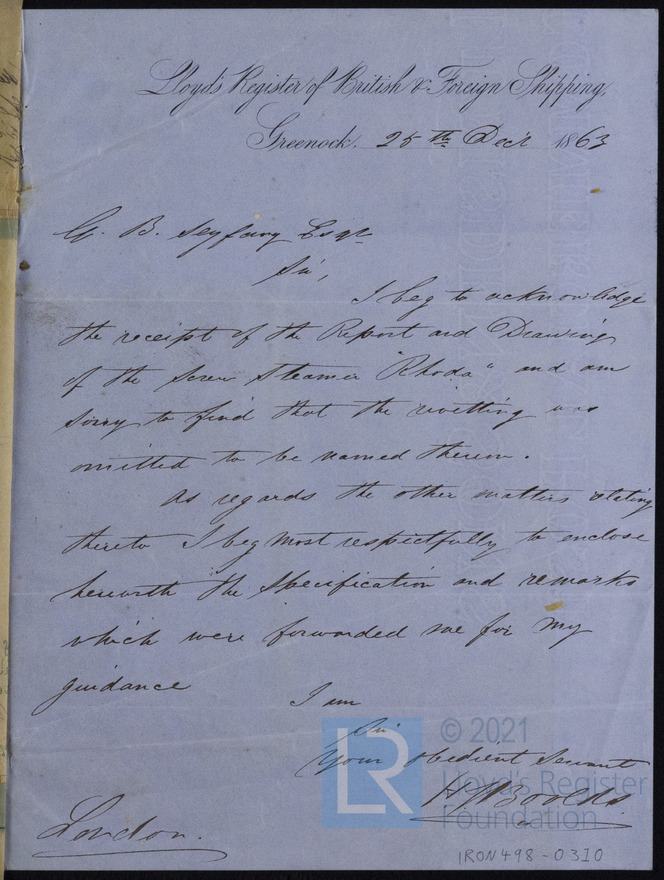 Lloyd's Register of British & Foreign Shipping,
Greenock. 25th Decr 1863
G. B. Seyfang Esqre
Sir,
I beg to acknowledge
the receipt of the Report and Drawing
of the Screw Steamer "Rhoda" and am
sorry to find that the rivetting was
omitted to be named therein.
As regards the other matters relating
thereto I beg most respectfully to enclose
herewith the Specification and remarks
which were forwarded me for my
guidance
I am
Sir
Your obedient Servant
H J Boolds
London.
LR
© 2021
Lloyd's Register
Foundation
IRON498-0310